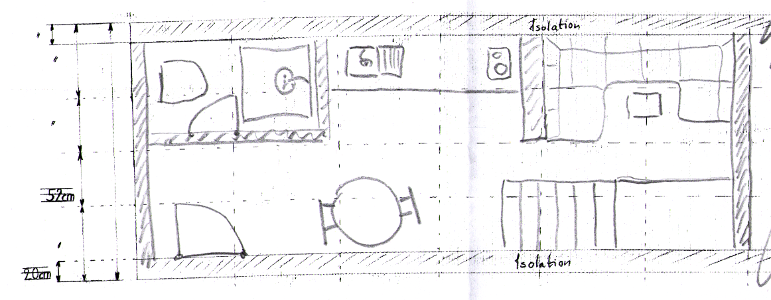 Isolation
52cm
20cm
Isolation